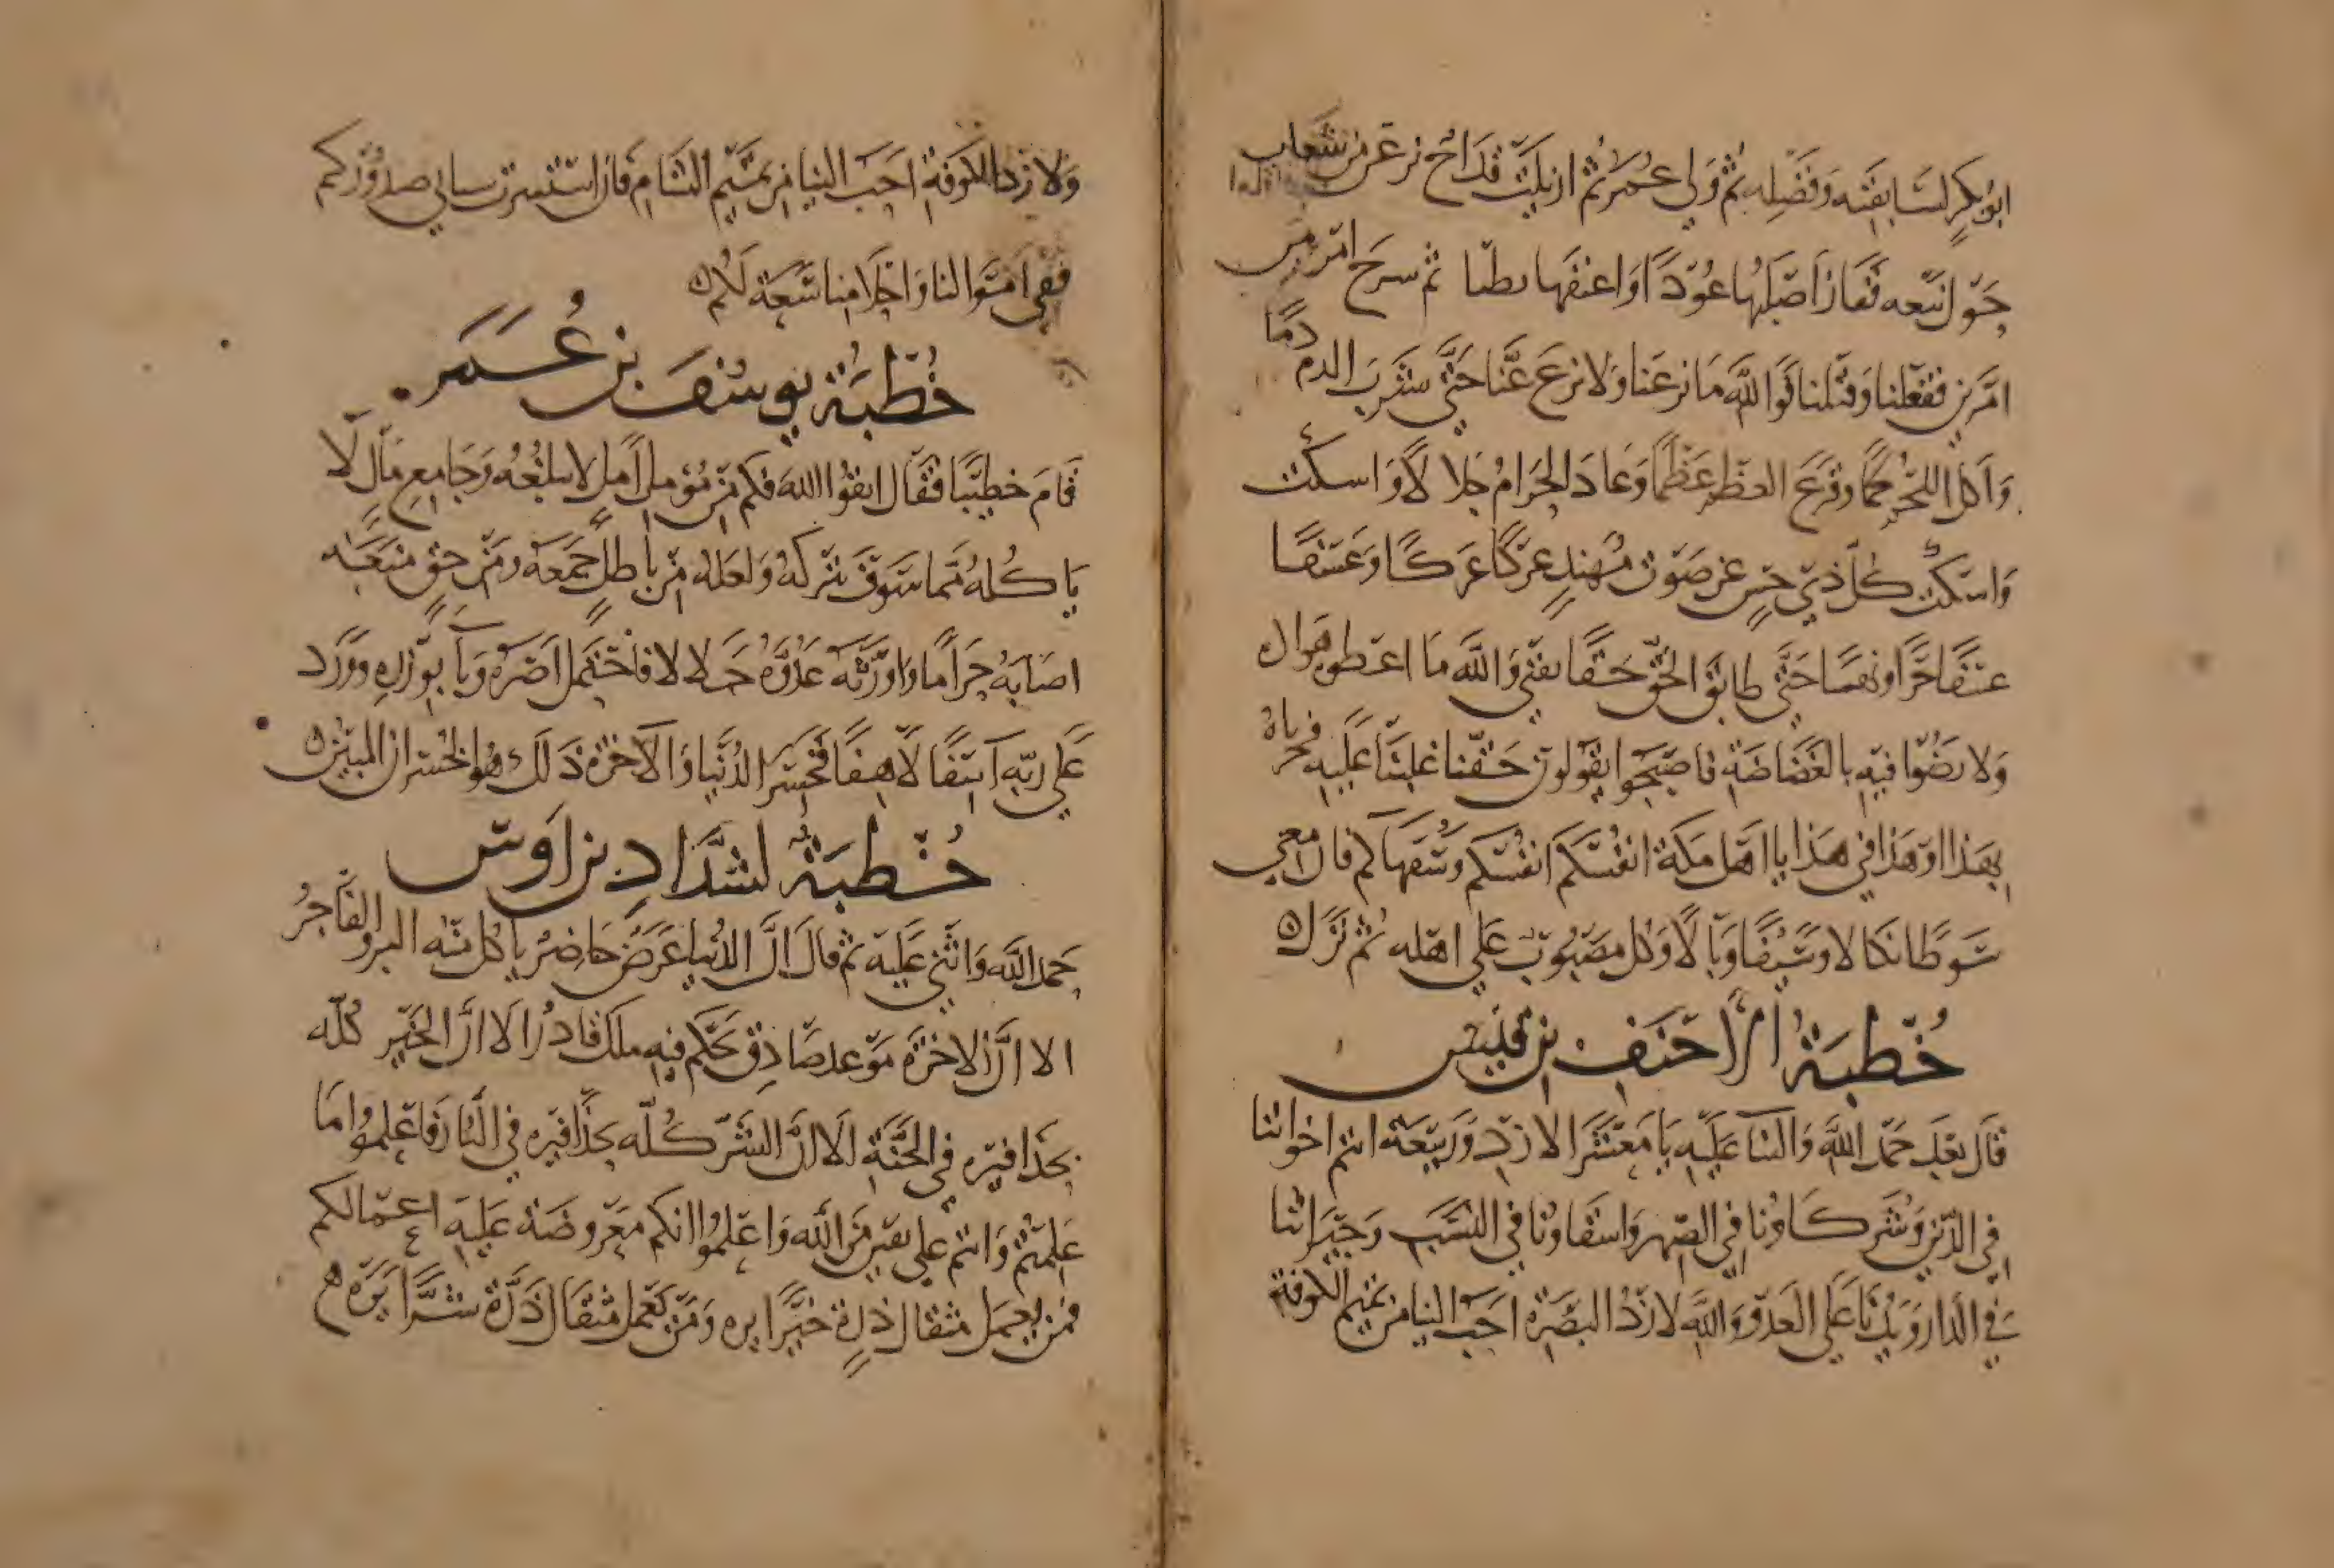 ابو بكر لسابقته وفضله ثم ولي عمر ثم اديلت قداح نزعن من شعاب
حول نبعه ففاز اصلبها عودا واعنفها ثم سرح امر مس
امرين ففعلنا وقتلنا فوالله ما نزعنا ولا نزع عنا حتى شرب الدم دما
واكل اللحم لحما وقرع العظم عظما وعاد الحرام حلالا واسكت
واسكت كل ذي حس عن صوت مهند عركا عركا وعسفا
حتى طابوا لحق حقنا والله ما اعطوه هوان
ولا رضوا فيه بالغضاضة فاصبحوا يقولون حقنا غلبنا عليه فجزياه
بهذا او هذا في هذا يا اهل مكة انفسكم انفسكم وسفهاكم فان معي
سوطا نكالا وسيفا وبالا وكل مصبوب على اهله ثم نزل
خطبة الاحنف بن قيس
قال بعد حمد الله والثنآ عليه يا معشر الازد وربيعة انتم اخواننا
في الدين وشركاونا في الصهر واشقاونا في النسب وجيراننا
في الدار ويدنا على العدو والله لازد البصرة احب الينا من تميم الكوفة
ولازد الكوفة احب الينا من تميم الشام فان استشرت صدوركم
ففي اموالنا واحلامنا سعة لكم
خطبة يوسف بن عمر
قام خطيبا فقال اتقوا الله فكم من مؤمل املا لا يبلغه وجامع مال لا
ياكله مما سوف يتركه ولعله من باطل جمعه ومن حق منعه
اصابه حراما واورثه عدوه حلالا فاحتمل اصره وبآ بوزره وورد
على ربه آسفا لاهفا فخسر الدنيا والآخرة ذلك هو الخسران المبين
خطبة لشداد بن اوس
حمد الله واثنى عليه ثم قال ان الدنيا عرض حاضر ياكل منه البر والفاجر
الا ان الاخرة موعد صادق يحكم فيه ملك قادر الا ان الخير كله
بحذافيره في الجنة الا ان الشر كله بحذافيره في النار فاعلموا ما
علمتم وانتم على يقين من الله واعلموا انكم معروضة عليه اعمالكم
فمن يعمل مثقال ذرة خيرا يره ومن يعمل مثقال ذرة شرا يره